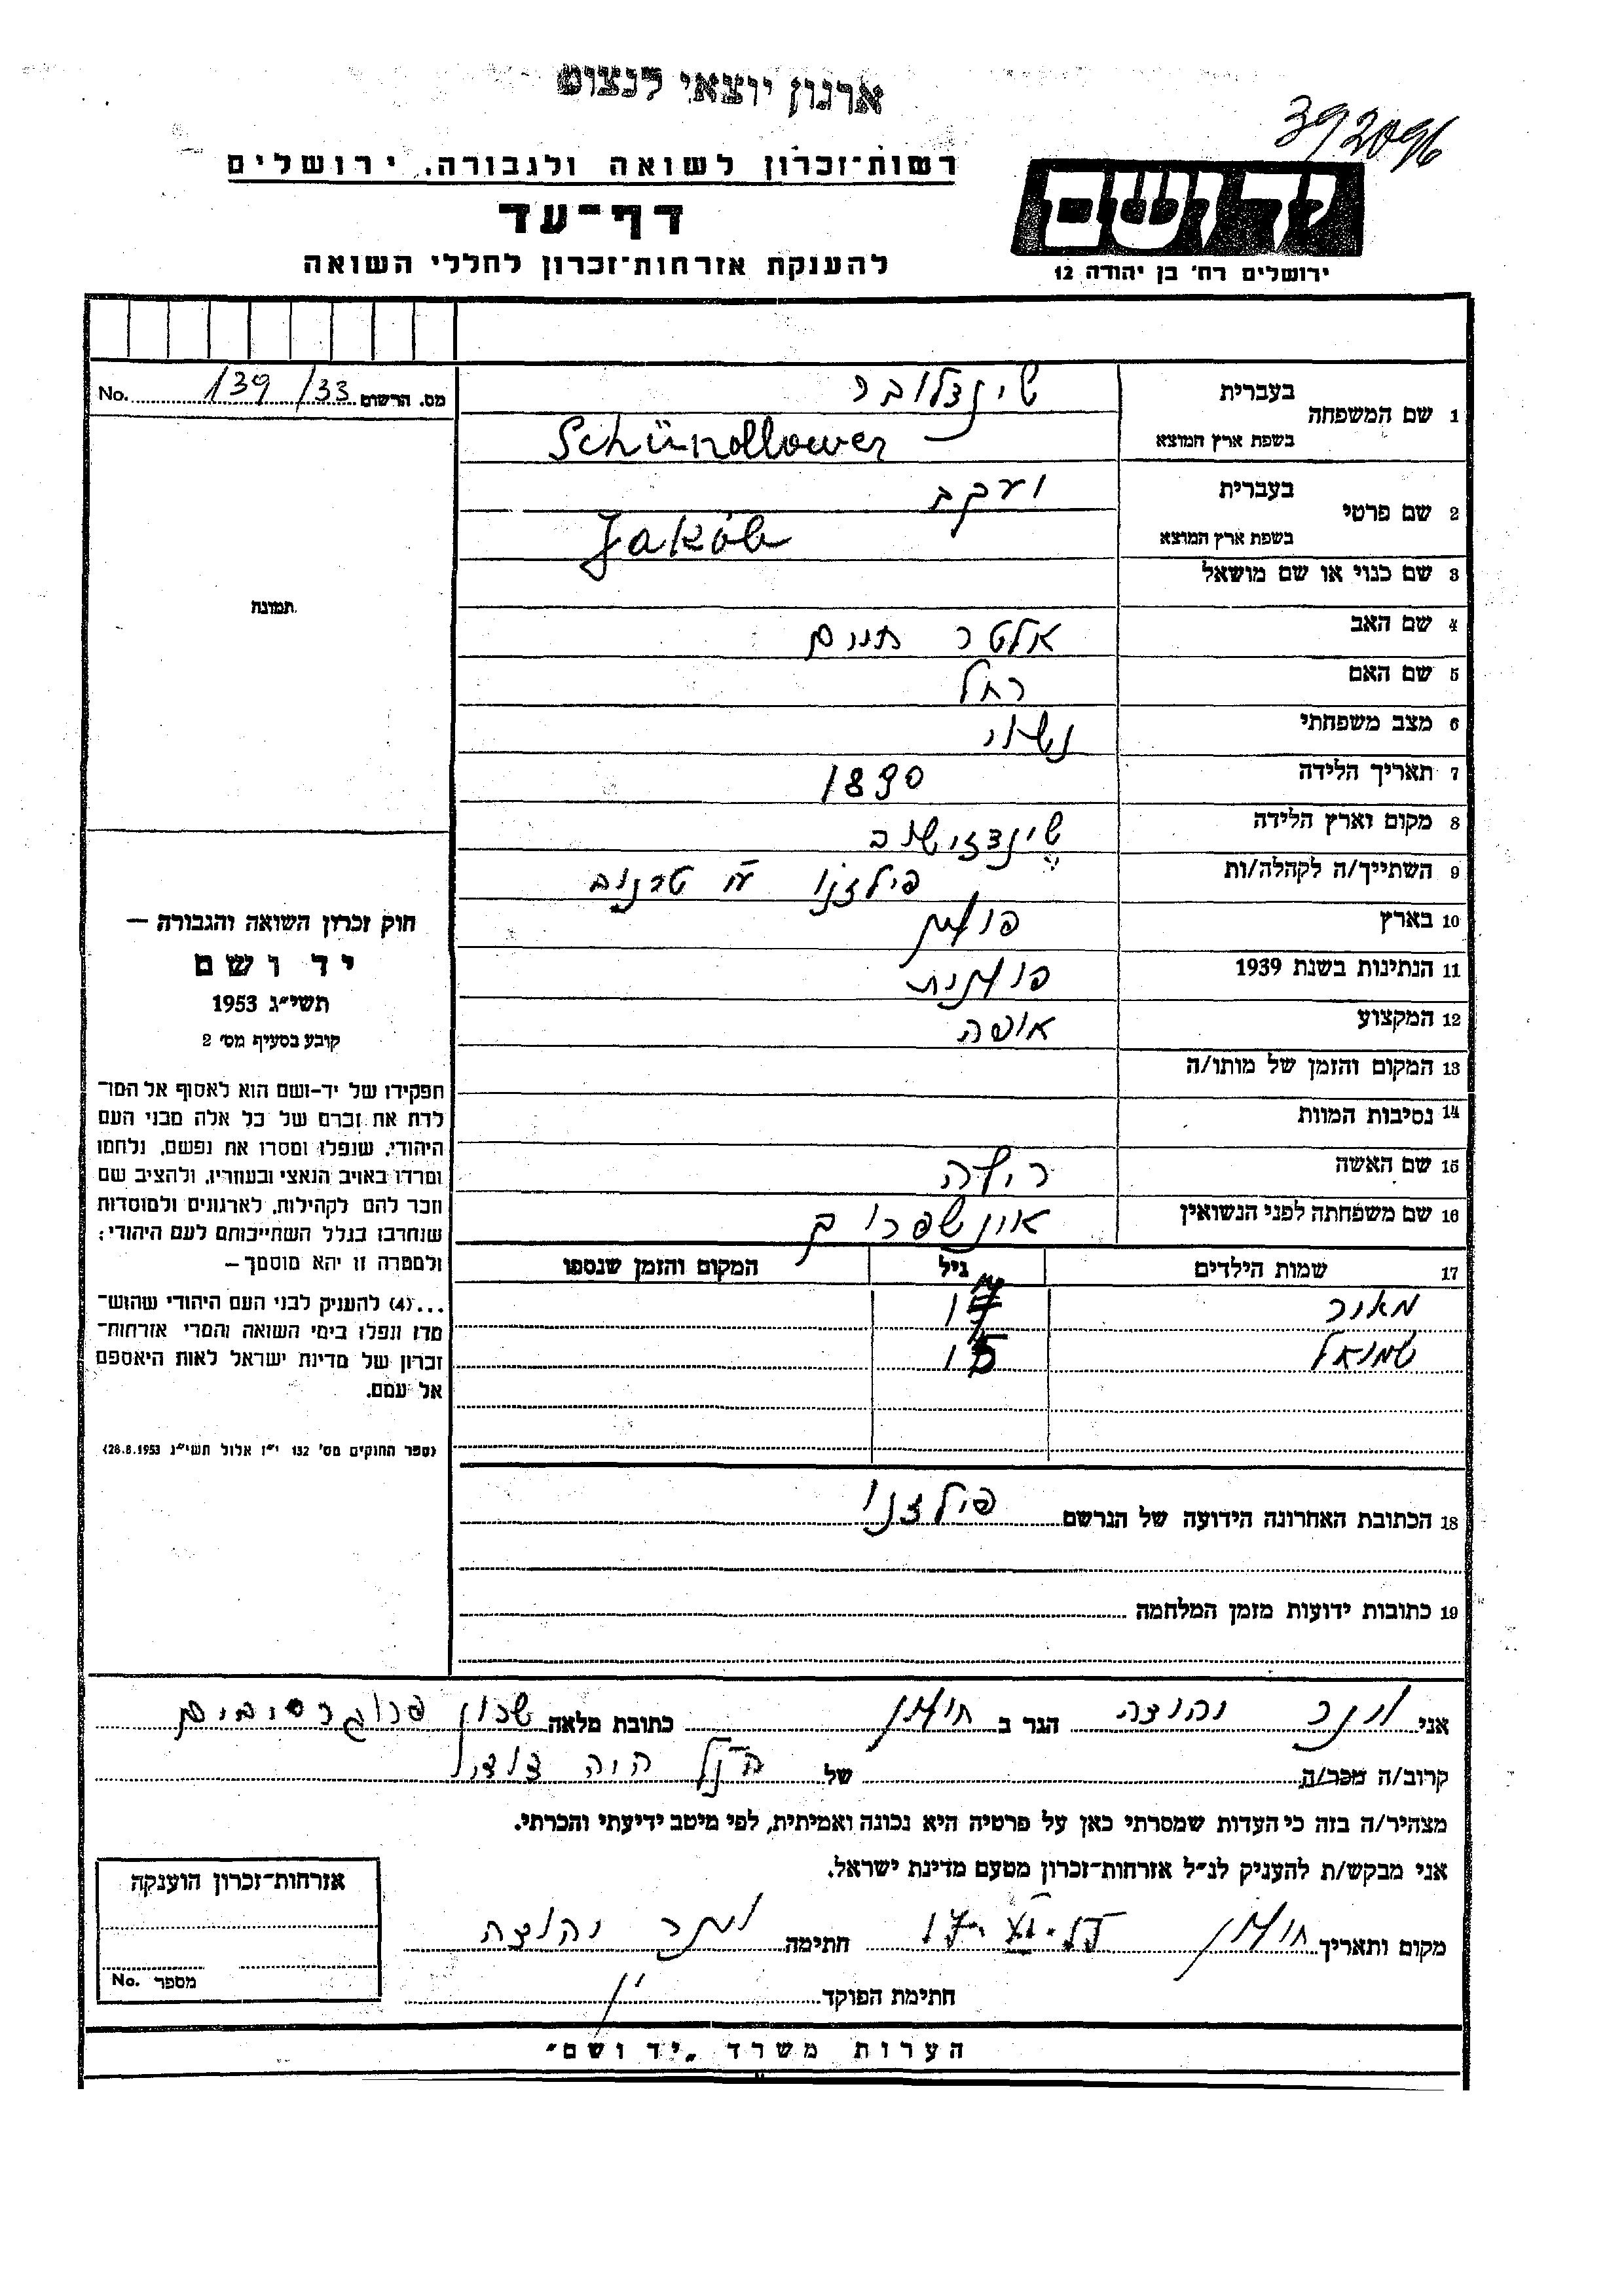 ארגון יוצאי לנצוט
392096
רשות־זכרון לשואה ולגבורה, ירושלים
דף־עד
להענקת אזרחות־זכרון לחללי השואה
יד ושם
ירושלים רח' בן יהודה 12
מס. הרשום 139/33 No.
1 שם המשפחה בעברית שינדלובר
בשפת ארץ המוצא Schündllower
2 שם פרטי בעברית יעקב
בשפת ארץ המוצא Jakób
3 שם כנוי או שם מושאל
4 שם האב אלטר חיים
5 שם האם רחל
6 מצב משפחתי נשוי
7 תאריך הלידה 1890
8 מקום וארץ הלידה
9 השתייך/ה לקהלה/ות פילזנו ע״י טרנוב
10 בארץ פולין
11 הנתינות בשנת 1939 פולנית
12 המקצוע אופה
13 המקום והזמן של מותו/ה
14 נסיבות המוות
15 שם האשה
16 שם משפחתה לפני הנשואין
17 שמות הילדים גיל המקום והזמן שנספו
מאיר 17
שמואל 15
18 הכתובת האחרונה הידועה של הנרשם פילזנו
19 כתובות ידועות מזמן המלחמה
תמונה
חוק זכרון השואה והגבורה —
יד ושם
תשי״ג 1953
קובע בסעיף מס׳ 2
תפקידו של יד-ושם הוא לאסוף אל המו־
לדת את זכרם של כל אלה מבני העם
היהודי, שנפלו ומסרו את נפשם, נלחמו
ומרדו באויב הנאצי ובעוזריו, ולהציב שם
וזכר להם לקהילות, לארגונים ולמוסדות
שנחרבו בגלל השתייכותם לעם היהודי;
ולמטרה זו יהא מוסמך—
...(4) להעניק לבני העם היהודי שהוש־
מדו ונפלו בימי השואה והמרי אזרחות־
זכרון של מדינת ישראל לאות היאספם
אל עמם.
(ספר החוקים מס׳ 132 י״ז אלול תשי״ג 28.8.1953)
אני יהודה הגר ב חולון כתובת מלאה שכון פרוגרסיבים
קרוב/ה מכר/ה של הנ״ל היה דודי
מצהיר/ה בזה כי העדות שמסרתי כאן על פרטיה היא נכונה ואמיתית, לפי מיטב ידיעתי והכרתי.
אני מבקש/ת להעניק לנ״ל אזרחות־זכרון מטעם מדינת ישראל.
מקום ותאריך חולון חתימה יהודה
חתימת הפוקד
אזרחות־זכרון הוענקה
מספר No.
הערות משרד „יד ושם״